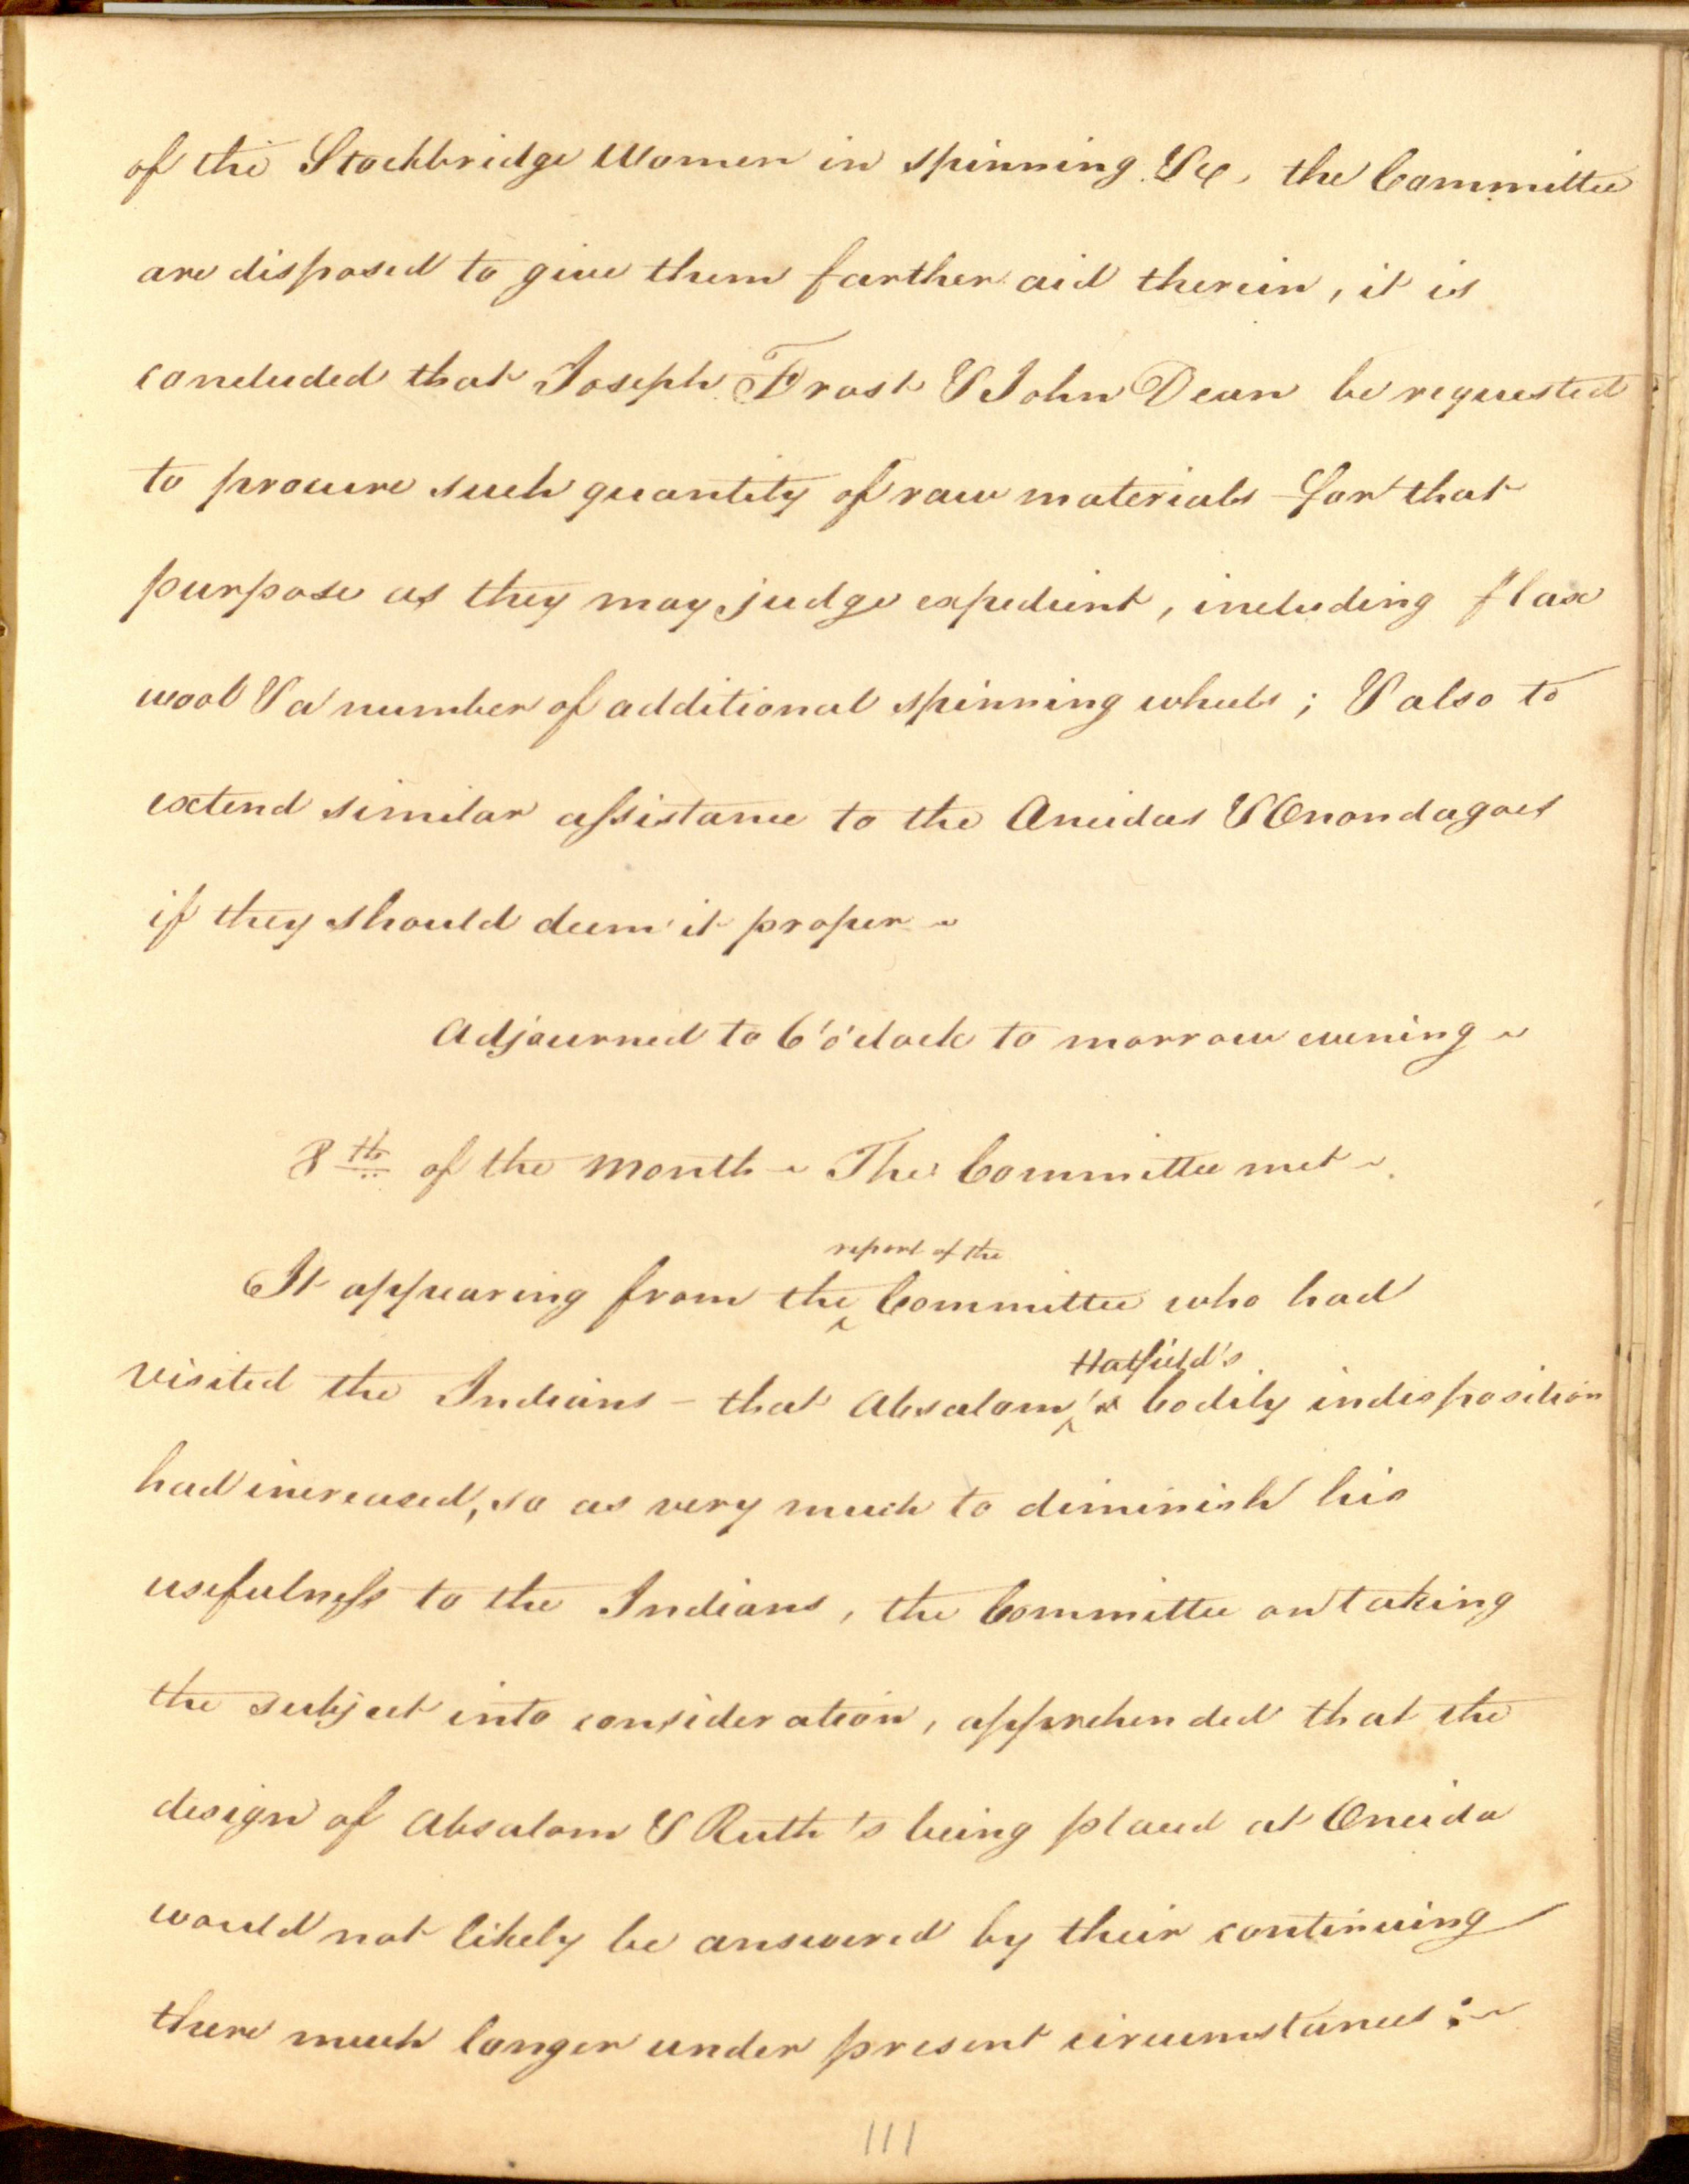 of the Stockbridge Women in spinning &c, the Committee
are disposed to give them farther aid therein, it is
concluded that Joseph Frost & John Dean be requested
to procure such quantity of raw materials for that
purpose as they may judge expedient, including flax
wool & a number of additional spinning wheels; & also to
extend similar assistance to the Oneidas & Onondagoes
if they should deem it proper ~
Adjourned to 6 o'clock to morrow evening ~
8th of the month ~ The Committee met ~
report of the
It appearing from the ‸ Committee who had
Hatfield's
visited the Indians - that Absalom ‸'s bodily indisposition
had increased, so as very much to diminish his
usefulness to the Indians, the Committee on taking
the subject into consideration, apprehended that the
design of Absalom & Ruth's being placed at Oneida
would not likely be answered by their continuing
there much longer under present circumstances: ~
111